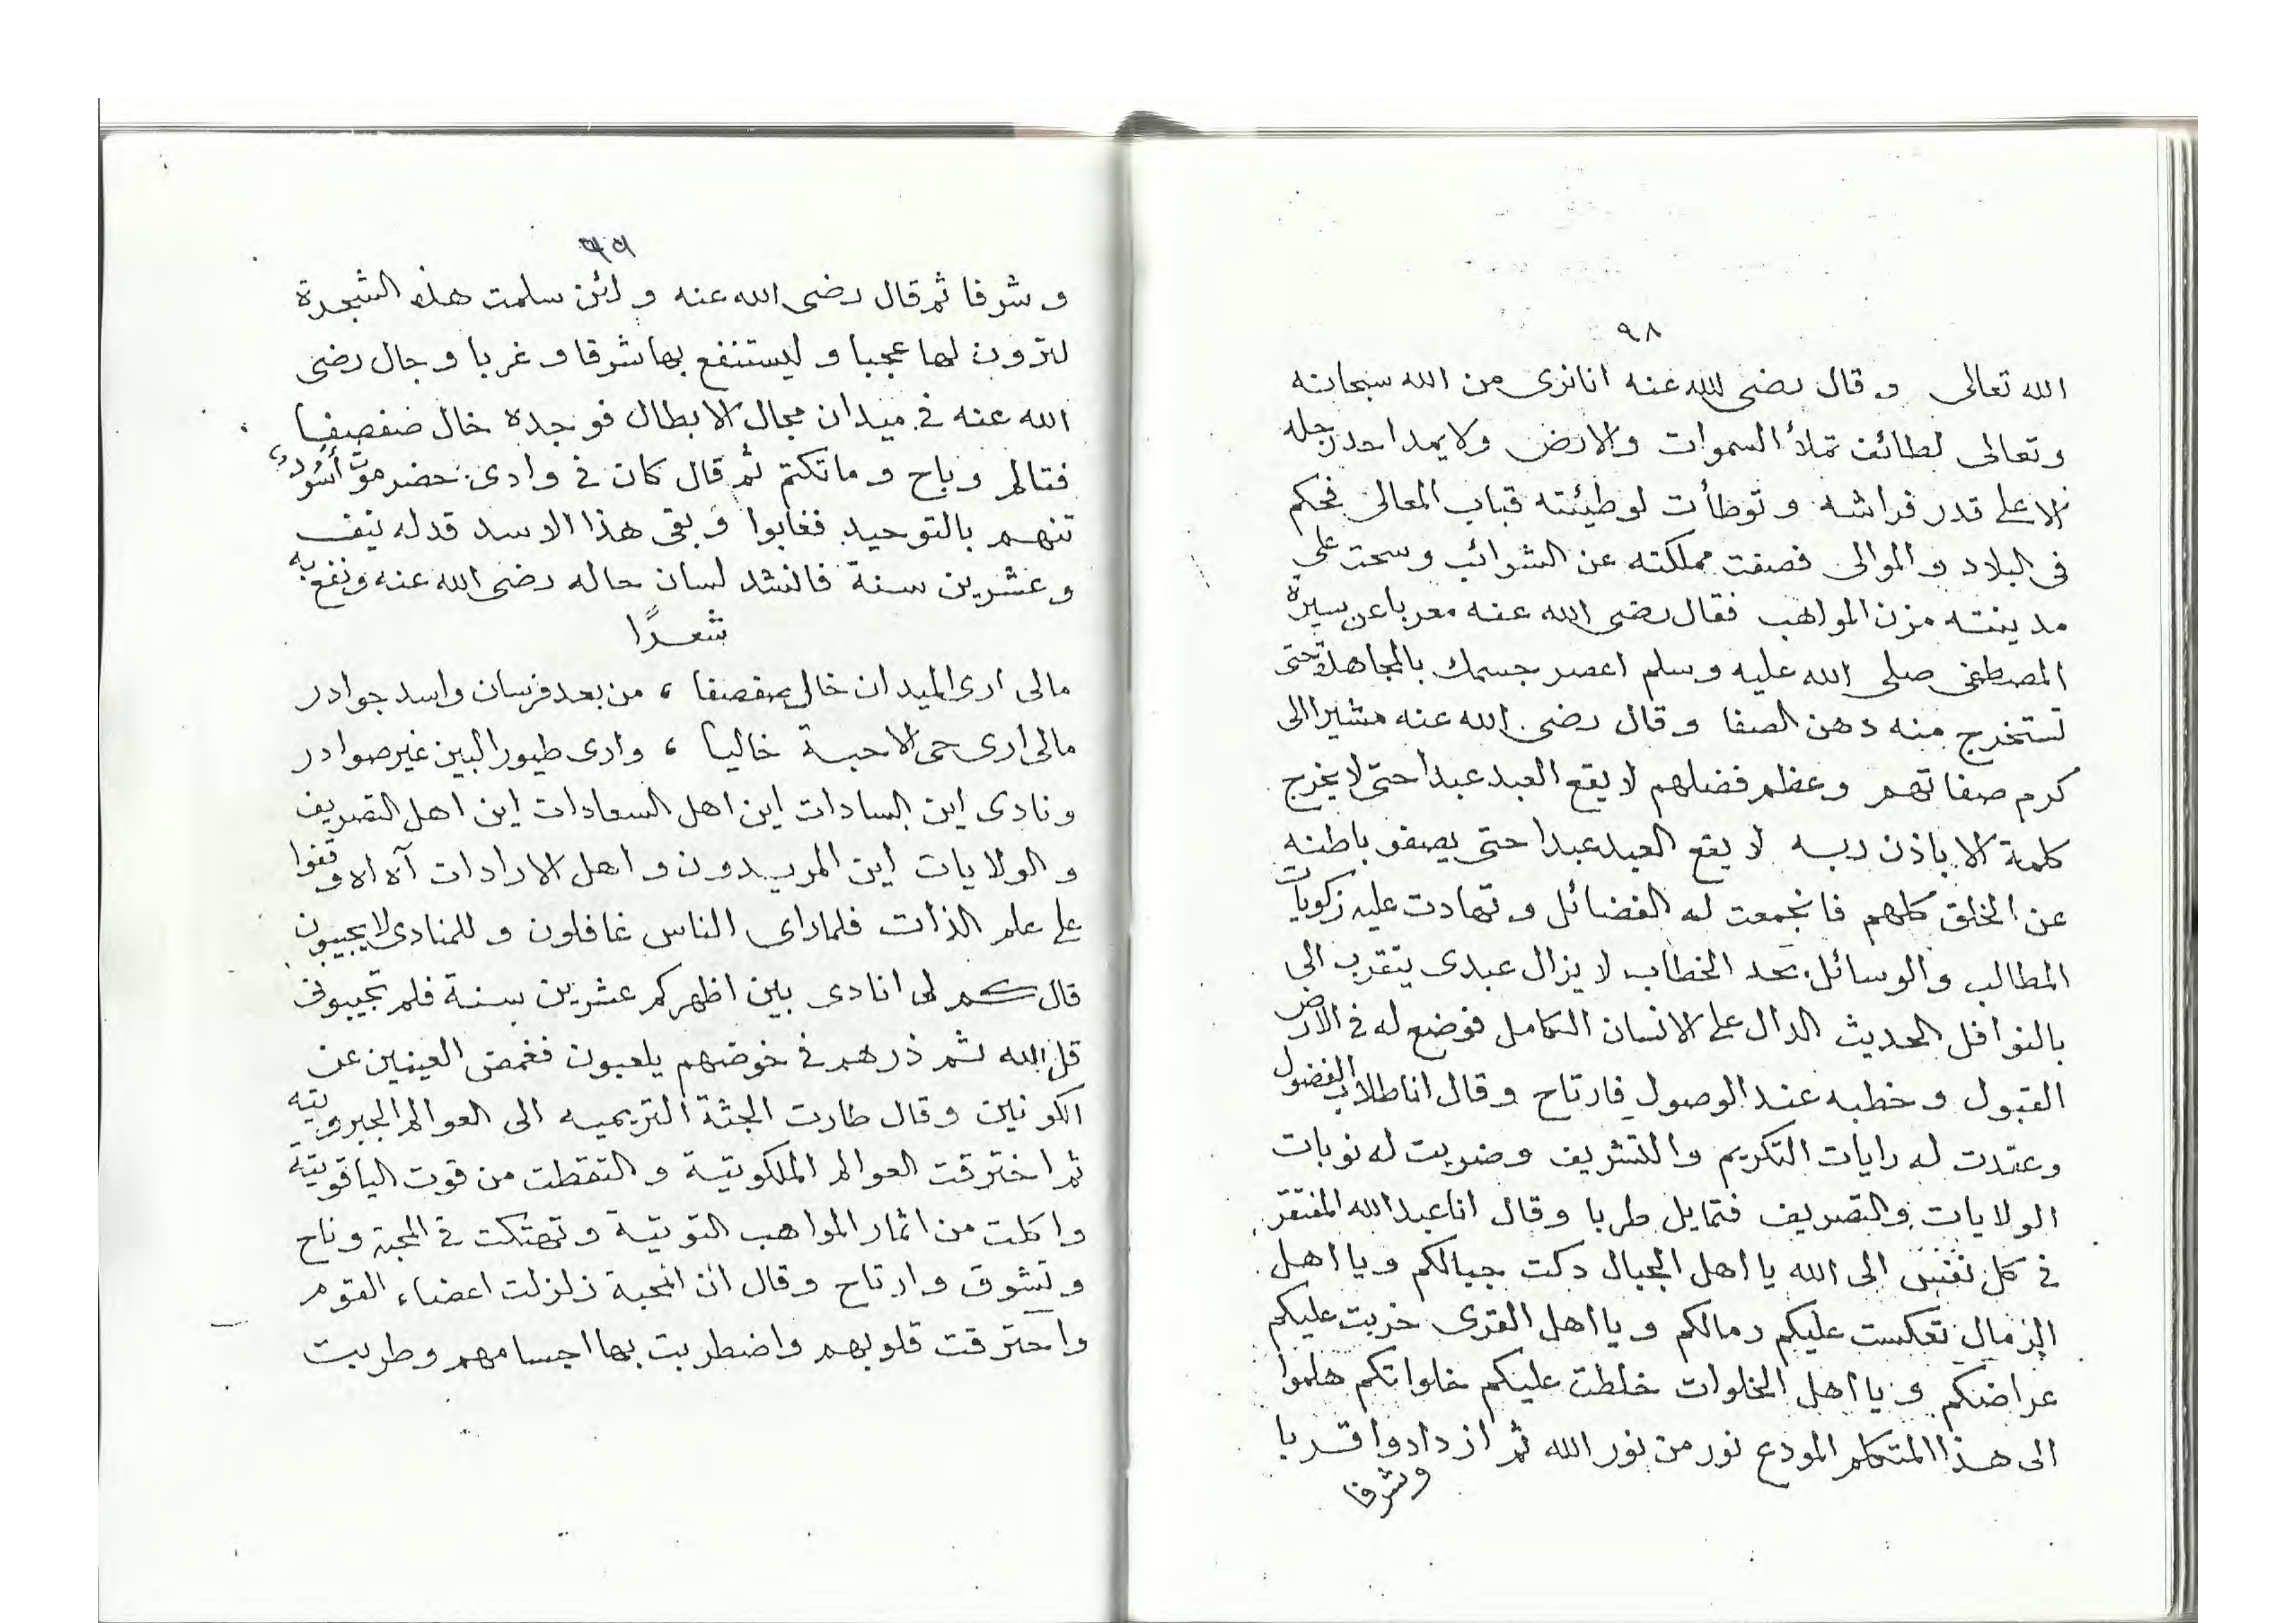 ٩٨
الله تعالى وقال رضى الله عنه انا نرى من الله سبحانه
وتعالى لطائف تملأ السموات والارض ولا يمد احد رجله
الا على قدر فراشه وتوطأت لوطيئته قباب المعالى فحكم
فى البلاد والموالى فصفت مملكته عن الشوائب وسحت على
مدينته مزن المواهب فقال رضى الله عنه معربا عن سيرة
المصطفى صلى الله عليه وسلم اعصر جسمك بالمجاهدة حتى
تستخرج منه دهن الصفا وقال رضى الله عنه مشيرا الى
كرم صفاتهم وعظم فضلهم لا يقع العبد عبدا حتى لا يخرج
كلمة الا باذن ربه لا يقع العبد عبدا حتى يصفو باطنه
عن الخلق كلهم فانجمعت له الفضائل وتهادت عليه زكويات
المطالب والوسائل بحد الخطاب لا يزال عبدى يتقرب الى
بالنوافل الحديث الدال على الانسان الكامل فوضع له فى الارض
القبول وخطبه عند الوصول فارتاح وقال انا طلاب الفضول
وعقدت له رايات التكريم والتشريف وضربت له نوبات
الولايات والتصريف فتمايل طربا وقال انا عبد الله المفتقر
فى كل نفس الى الله يا اهل الجبال دكت جبالكم ويا اهل
الرمال تعكست عليكم رمالكم ويا اهل القرى خربت عليكم
عراضكم ويا اهل الخلوات خلطت عليكم خلواتكم هلموا
الى هذا المتكلم المودع نور من نور الله ثم ازدادوا قربا
وشرفا
٩٩
وشرفا ثم قال رضى الله عنه ولئن سلمت هذه الشجرة
لترون لها عجبا وليستنفع بها شرقا وغربا وجال رضى
الله عنه فى ميدان مجال الابطال فوجده خال صفصفا
فتالم وباح وما تكتم ثم قال كان فى وادى حضرموت أسُود
تنهم بالتوحيد فغابوا وبقى هذا الاسد قد له نيف
وعشرين سنة فانشد لسان حاله رضى الله عنه ونفع به
شعرًا
مالى ارى الميدان خال صفصفا ، من بعد فرسان واسد جوادر
مالى ارى حى الاحبة خاليا ، وارى طيور البين غير صوادر
ونادى اين السادات اين اهل السعادات اين اهل التصريف
والولايات اين المريدون واهل الارادات آه اه وقفوا
على علم الذات فلما راى الناس غافلون وللمنادى لا يجيبون
قال كم لى انادى بين اظهركم عشرين سنة فلم تجيبونى
قل الله ثم ذرهم فى خوضهم يلعبون فغمض العينين عن
الكونين وقال طارت الجثة التريميه الى العوالم الجبروتيه
ثم اخترقت العوالم الملكوتية والتقطت من قوت الياقوتية
واكلت من اثمار المواهب التوتية وتهتكت فى المحبة وناح
وتشوق وارتاح وقال ان المحبة زلزلت اعضاء القوم
واحترقت قلوبهم واضطربت بها اجسامهم وطربت